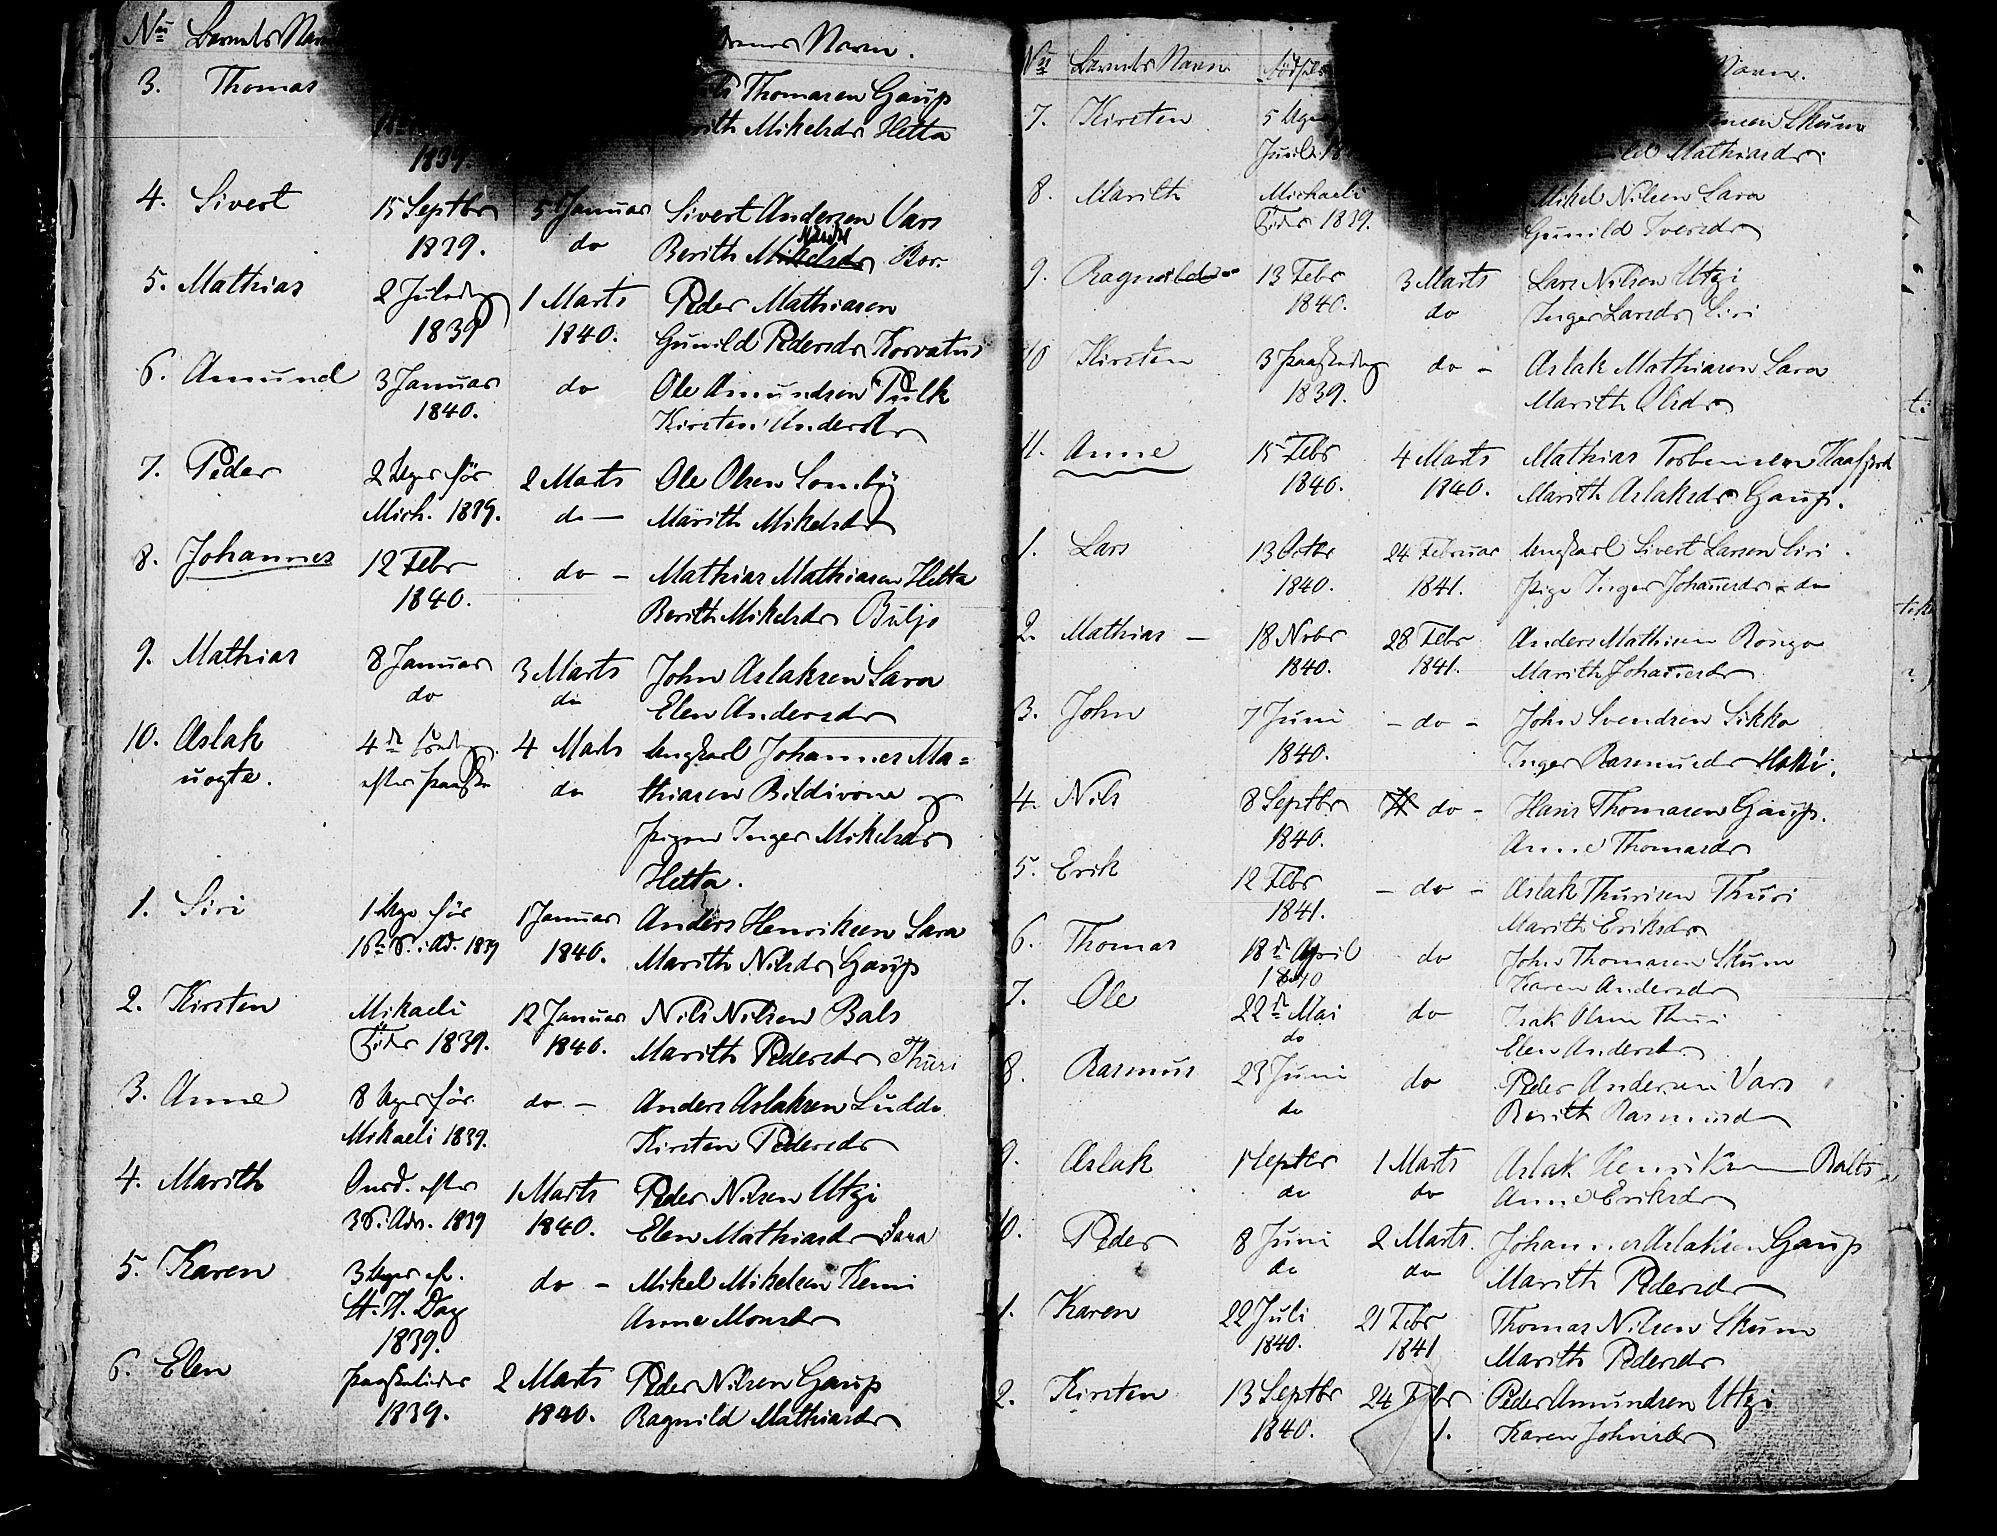 No Barnets Navn
Navn.
3. Thomas
Thomasen Gaup
Mikelsdr Hetta
1839.
4. Sivert 15 Septbr 5 Januar Sivert Andersen Vars
1839. do Berith Mikelsdr Bor.
5. Mathias 2 Juledag 1 Marts Peder Mathiasen
1839 1840. Gunild Pedersdr Korvatus
6. Amund 3 Januar do Ole Amundsen Pulk
1840. Kirsten Andersdr
7. Peder 2 Uger før 2 Marts Ole Olsen Somby
Mich. 1839. do — Marith Mikelsdr
8. Johannes 12 Febr do — Mathias Mathiasen Hetta
1840. Berith Mikelsdr Buljo
9. Mathias 8 Januar 3 Marts John Aslaksen Sara
do do Elen Andersdr
10. Aslak 4de 4 Marts Ungkarl Johannes Ma=
uægte. efter Paaske do thiasen Bildivone og
Pigen Inger Mikelsdr
Hetta.
1. Siri 1 Uge før 1 Januar Anders Henriksen Sara
1839 1840. Marith Nilsdr Gaup
2. Kirsten Mikaeli 12 Januar Nils Nilsen Bals
Tider 1839. 1840. Marith Pedersdr Thuri
3. Anne 8 Uger før do — Anders Aslaksen Ludde
Mikaeli 1839. Kirsten Pedersdr
4. Marith Onsd. efter 1 Marts Peder Nilsen Utzi
3 S. Adv. 1839 1840. Elen Mathiasdr Sara
5. Karen 3 Uger ef. do — Mikel Mikelsen Kemi
H. Dag Anne Monsdr
1839.
6. Elen Paasketider 2 Marts Peder Nilsen Gaup
1839. 1840. Ragnild Mathiasdr
No Barnets Navn Fødsels Navn.
7. Kirsten 5 Uger Skum
Mathiasdr.
8. Marith Michaeli Mikel Nilsen Sara
Tider 1839. Gunild Iversdr
9. Ragnild 13 Febr 3 Marts Lars Nilsen Utzi
1840. do Inger Larsdr Siri
10 Kirsten 3 Paaskedag do — Aslak Mathiasen Sara
1839. Marith Olsdr
11. Anne 15 Febr 4 Marts Mathias Torbensen Kaafjord
1840. 1840. Marith Aslaksdr Gaup.
1. Lars 13 Octbr 24 Februar Ungkarl Sivert Larsen Siri
1840. 1841. Pige Inger Johansdr do
2. Mathias — 18 Novbr 28 Febr Anders Mathisen
1840. 1841. Marith Johansdr
3. John 7 Juni — do — John Svendsen Sikko
1840. Inger Rasmusdr
4. Nils 8 Septbr do — Hans Thomasen Gaup.
1840. Anne Thomasdr
5. Erik 12 Febr — do — Aslak Thurisen Thuri
1841. Marith Eriksdr
6. Thomas 18de April do John Thomasen Skum
1840 Karen Andersdr
7. Ole 22de Mai do Isak Olsen Thuri
do Elen Andersdr
8. Rasmus 23 Juni do Peder Andersen Vars
do Berith Rasmusd
9. Aslak 1 Septbr 1 Marts Aslak Henriksen Balto
do do Anne Eriksdr
10. Peder 8 Juni 2 Marts. Johannes Aslaksen Gaup
do do Marith Pedersdr
1. Karen 22 Juli 21 Febr Thomas Nilsen Skum
1840. 1841 Marith Pedersdr
2. Kirsten 13 Septbr 24 Febr Peder Amundsen Utzi
1840. 1. Karen Johnsdr